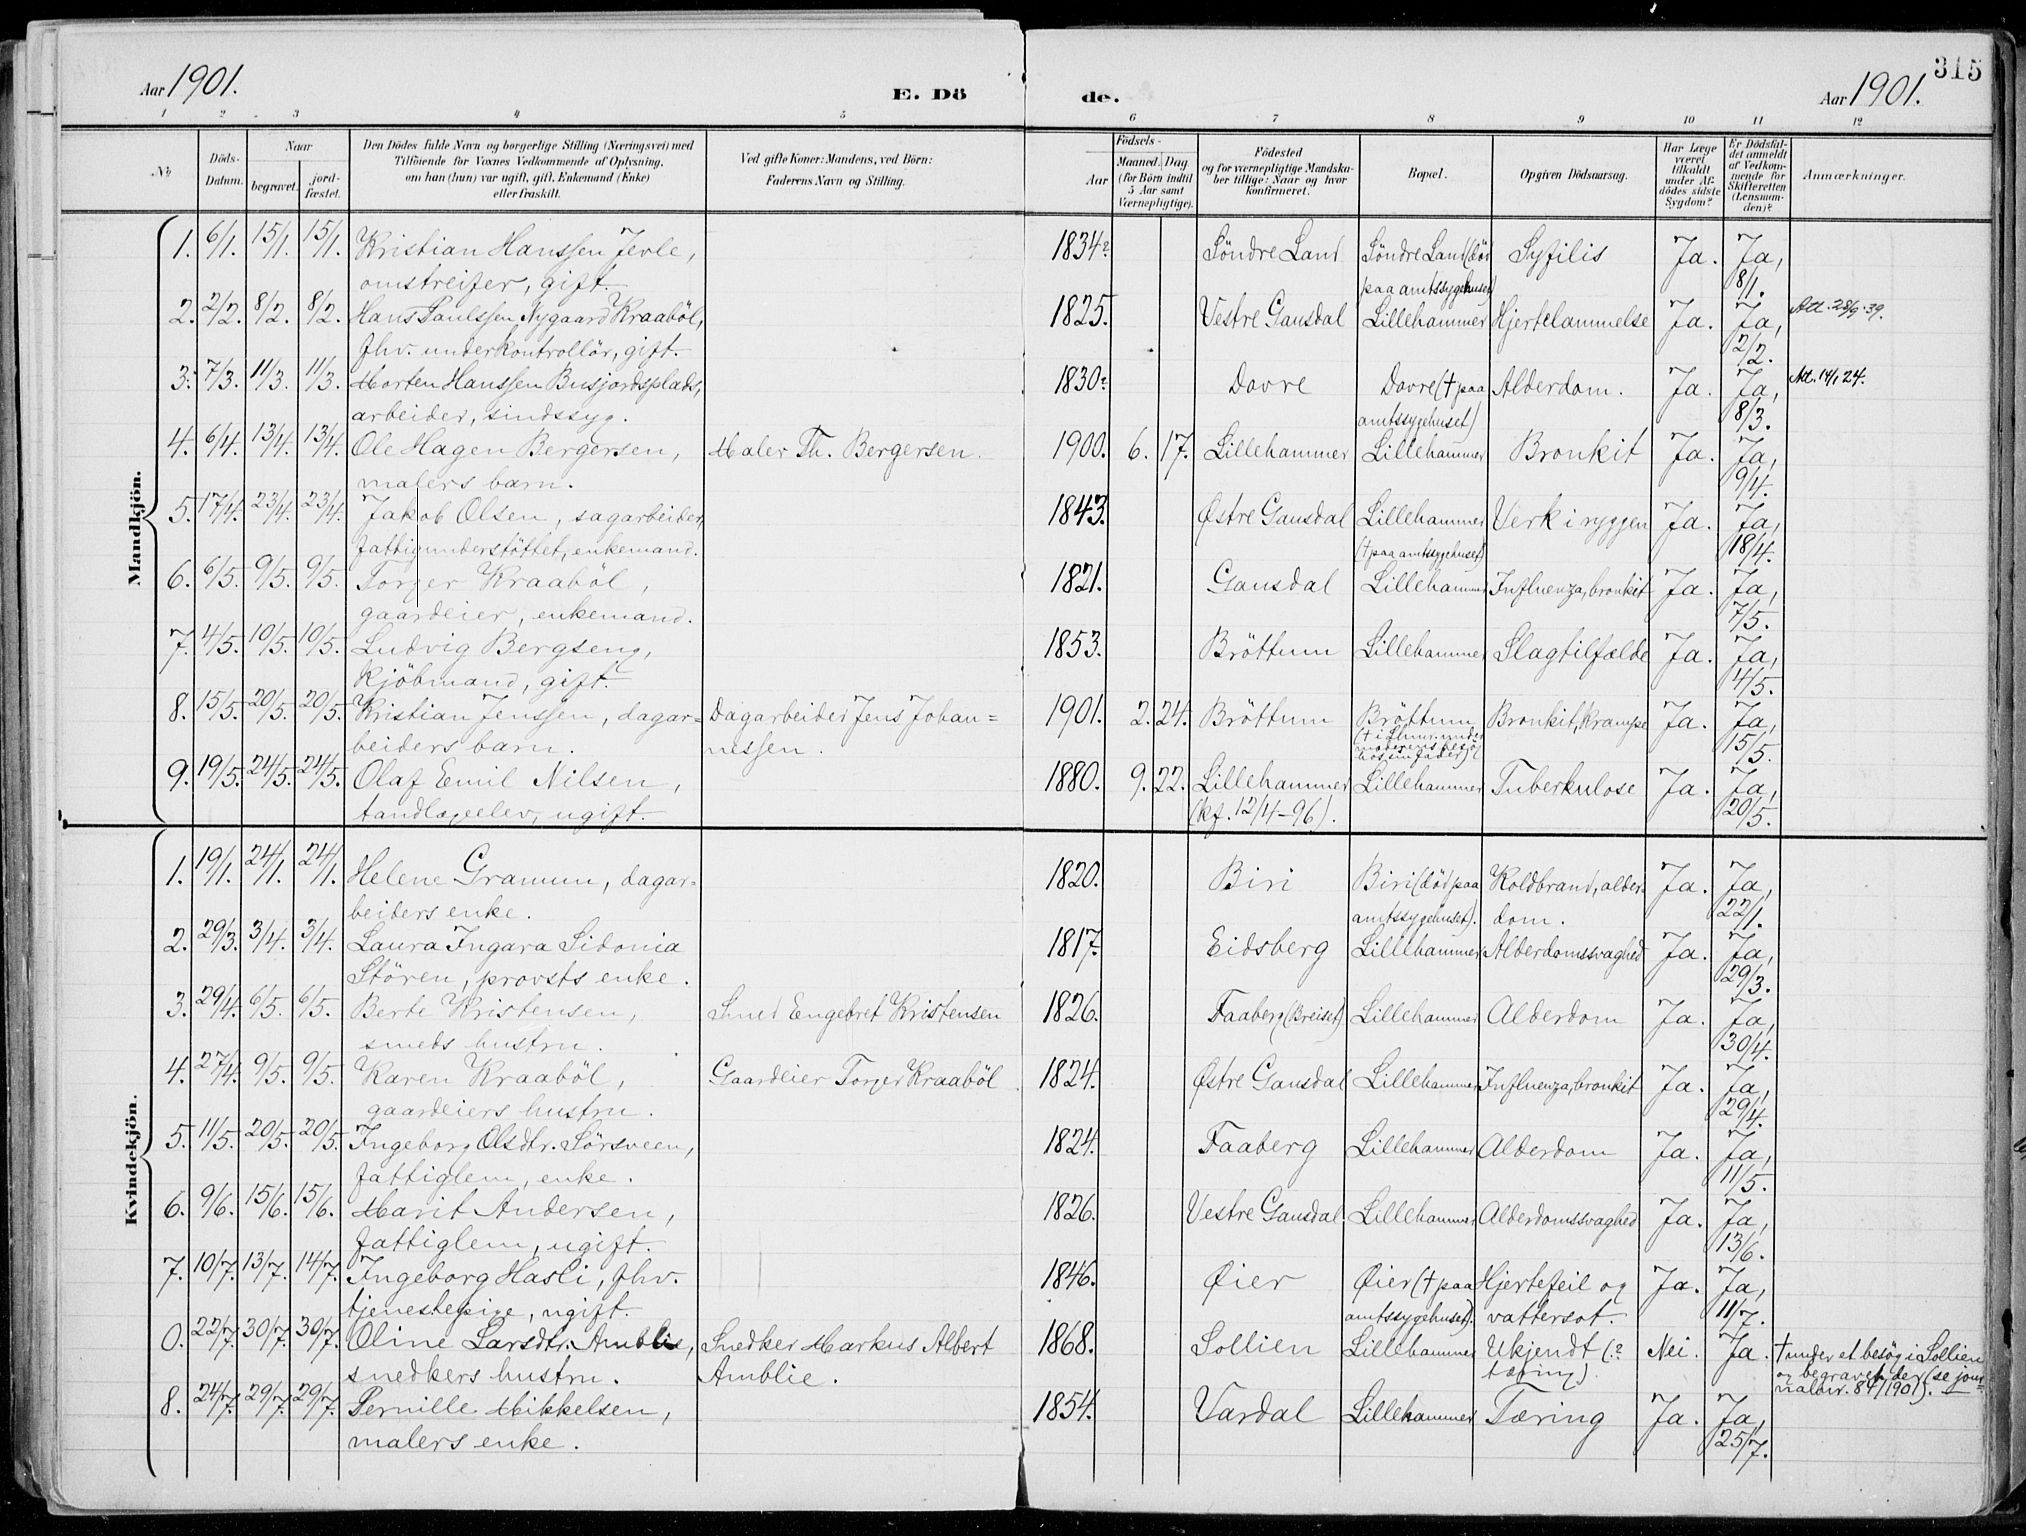 315
Aar 1901.
E. Dö
de.
Aar 1901.
1 2 3 4 5 6 7 8 9 10 11 12
No
Döds-
Datum.
Naar
begravet.
jord-
fæstet.
Den Dödes fulde Navn og borgerlige Stilling (Næringsvei) med
Tilföiende for Voxnes Vedkommende af Oplysning,
om han (hun) var ugift, gift, Enkemand (Enke)
eller fraskilt.
Ved gifte Koner: Mandens, ved Börn:
Faderens Navn og Stilling.
Födsels-
Aar
Maaned. Dag
(for Börn indtil
5 Aar samt
Værnepligtige).
Födested
og for værnepligtige Mandskaber tillige: Naar og hvor
konfirmeret.
Bopæl.
Opgiven Dödsaarsag.
Har Læge
været
tilkaldt
under Af-
dödes sidste
Sygdom?
Er Dödsfal-
det anmeldt
af Vedkom-
mende for
Skifteretten
(Lensman-
den)?
Anmærkninger.
Mandkjön.
1. 6/1. 15/1. 15/1. Kristian Hanssen Jevle, 1834? Söndre Land Söndre Land (död Syfilis Ja. Ja,
omstreifer, gift. paa amtssygehuset) 8/1.
2. 2/2. 8/2. 8/2. Hans Paulssen Nygaard Kraaböl, 1825. Vestre Gausdal Lillehammer Hjertelammelse Ja. Ja, Att. 28/9.39.
fhv. underkontrollör, gift. 2/2.
3. 7/3. 11/3. 11/3. Morten Hanssen Busjordsplads, 1830? Dovre Dovre († paa Alderdom. Ja. Ja, Att. 14/1 24.
arbeider, sindssyg. amtssygehuset) 8/3.
4. 6/4. 13/4. 13/4. Ole Hagen Bergersen, Maler Th. Bergersen. 1900. 6. 17. Lillehammer Lillehammer Bronkit Ja. Ja,
malers barn. 9/4.
5. 17/4. 23/4. 23/4. Jakob Olsen, sagarbeider, 1843. Østre Gausdal Lillehammer Verk i ryggen Ja. Ja,
fattigunderstöttet, enkemand. († paa amtssygehuset) 18/4.
6. 6/5. 9/5. 9/5. Torger Kraaböl, 1821. Gausdal Lillehammer Influenza, bronkit Ja. Ja,
gaardeier, enkemand. 7/5.
7. 4/5. 10/5. 10/5. Ludvig Bergseng, 1853. Bröttum Lillehammer Slagtilfælde Ja. Ja,
kjöbmand, gift. 4/5.
8. 15/5. 20/5. 20/5. Kristian Jenssen, dagar= Dagarbeider Jens Johan= 1901. 2. 24. Bröttum Bröttum Bronkit, Krampe Ja. Ja,
beiders barn. nessen. († i Lhmr. under
moderens besög
hos sin fader) 15/5.
9. 19/5. 24/5. 24/5. Olaf Emil Nilsen, 1880. 9. 22. Lillehammer Lillehammer Tuberkulose Ja. Ja,
tandlægeelev, ugift. (kf. 12/4-96). 20/5.
Kvindekjön.
1. 19/1. 24/1. 24/1. Helene Gramum, dagar- 1820. Biri Biri (död paa Koldbrand, alder- Ja. Ja,
beiders enke. amtssygehuset). dom. 22/1.
2. 29/3. 3/4. 3/4. Laura Ingara Sidonia 1817. Eidsberg Lillehammer Alderdomssvaghed Ja. Ja,
Stören, provsts enke. 29/3.
3. 29/4. 6/5. 6/5. Berte Kristensen, Smed Engebret Kristensen 1826. Faaberg (Breiset) Lillehammer Alderdom Ja. Ja,
smeds hustru. 30/4.
4. 27/4. 9/5. 9/5. Karen Kraaböl, Gaardeier Torger Kraaböl 1824. Østre Gausdal Lillehammer Influenza, bronkit Ja. Ja,
gaardeiers hustru. 29/4.
5. 11/5. 20/5. 20/5. Ingeborg Olsdtr. Sörsveen, 1824. Faaberg Lillehammer Alderdom Ja. Ja,
fattiglem, enke. 11/5.
6. 9/6. 15/6. 15/6. Marit Andersen, 1826. Vestre Gausdal. Lillehammer Alderdomssvaghed Ja. Ja,
fattiglem, ugift. 13/6.
7. 10/7. 13/7. 14/7. Ingeborg Hasli, fhv. 1846. Øier Øier († paa Hjertefeil og Ja. Ja,
tjenestepige, ugift. amtssygehuset). vattersot. 11/7.
0. 22/7. 30/7. 30/7. Oline Larsdtr. Amblie, Snedker Markus Albert 1868. Sollien Lillehammer Ukjendt (? Nei. Ja. † under et besög i Sollien
snedkers hustru. Amblie. tæring). og begravet der (se jour=
nalnr. 84/1901).
8. 24/7. 29/7. 29/7. Pernille Mikkelsen, 1854. Vardal Lillehammer Tæring Ja. Ja,
malers enke. 25/7.